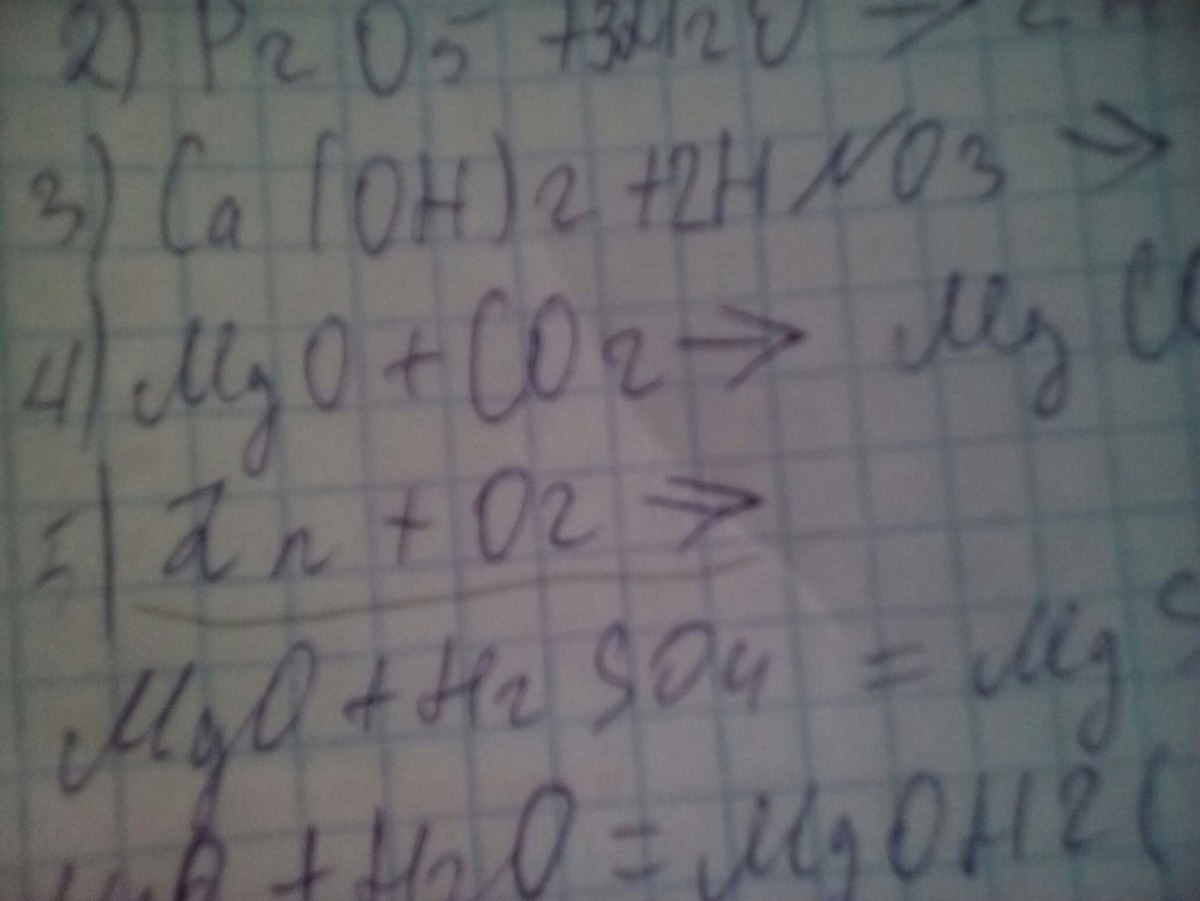 2) P2O5 + 3H2O → 2H
3) Ca(OH)2 + 2HNO3 →
4) MgO + CO2 → MgC
5) Zn + O2 →
MgO + H2SO4 = MgS
MgO + H2O = MgOH2(